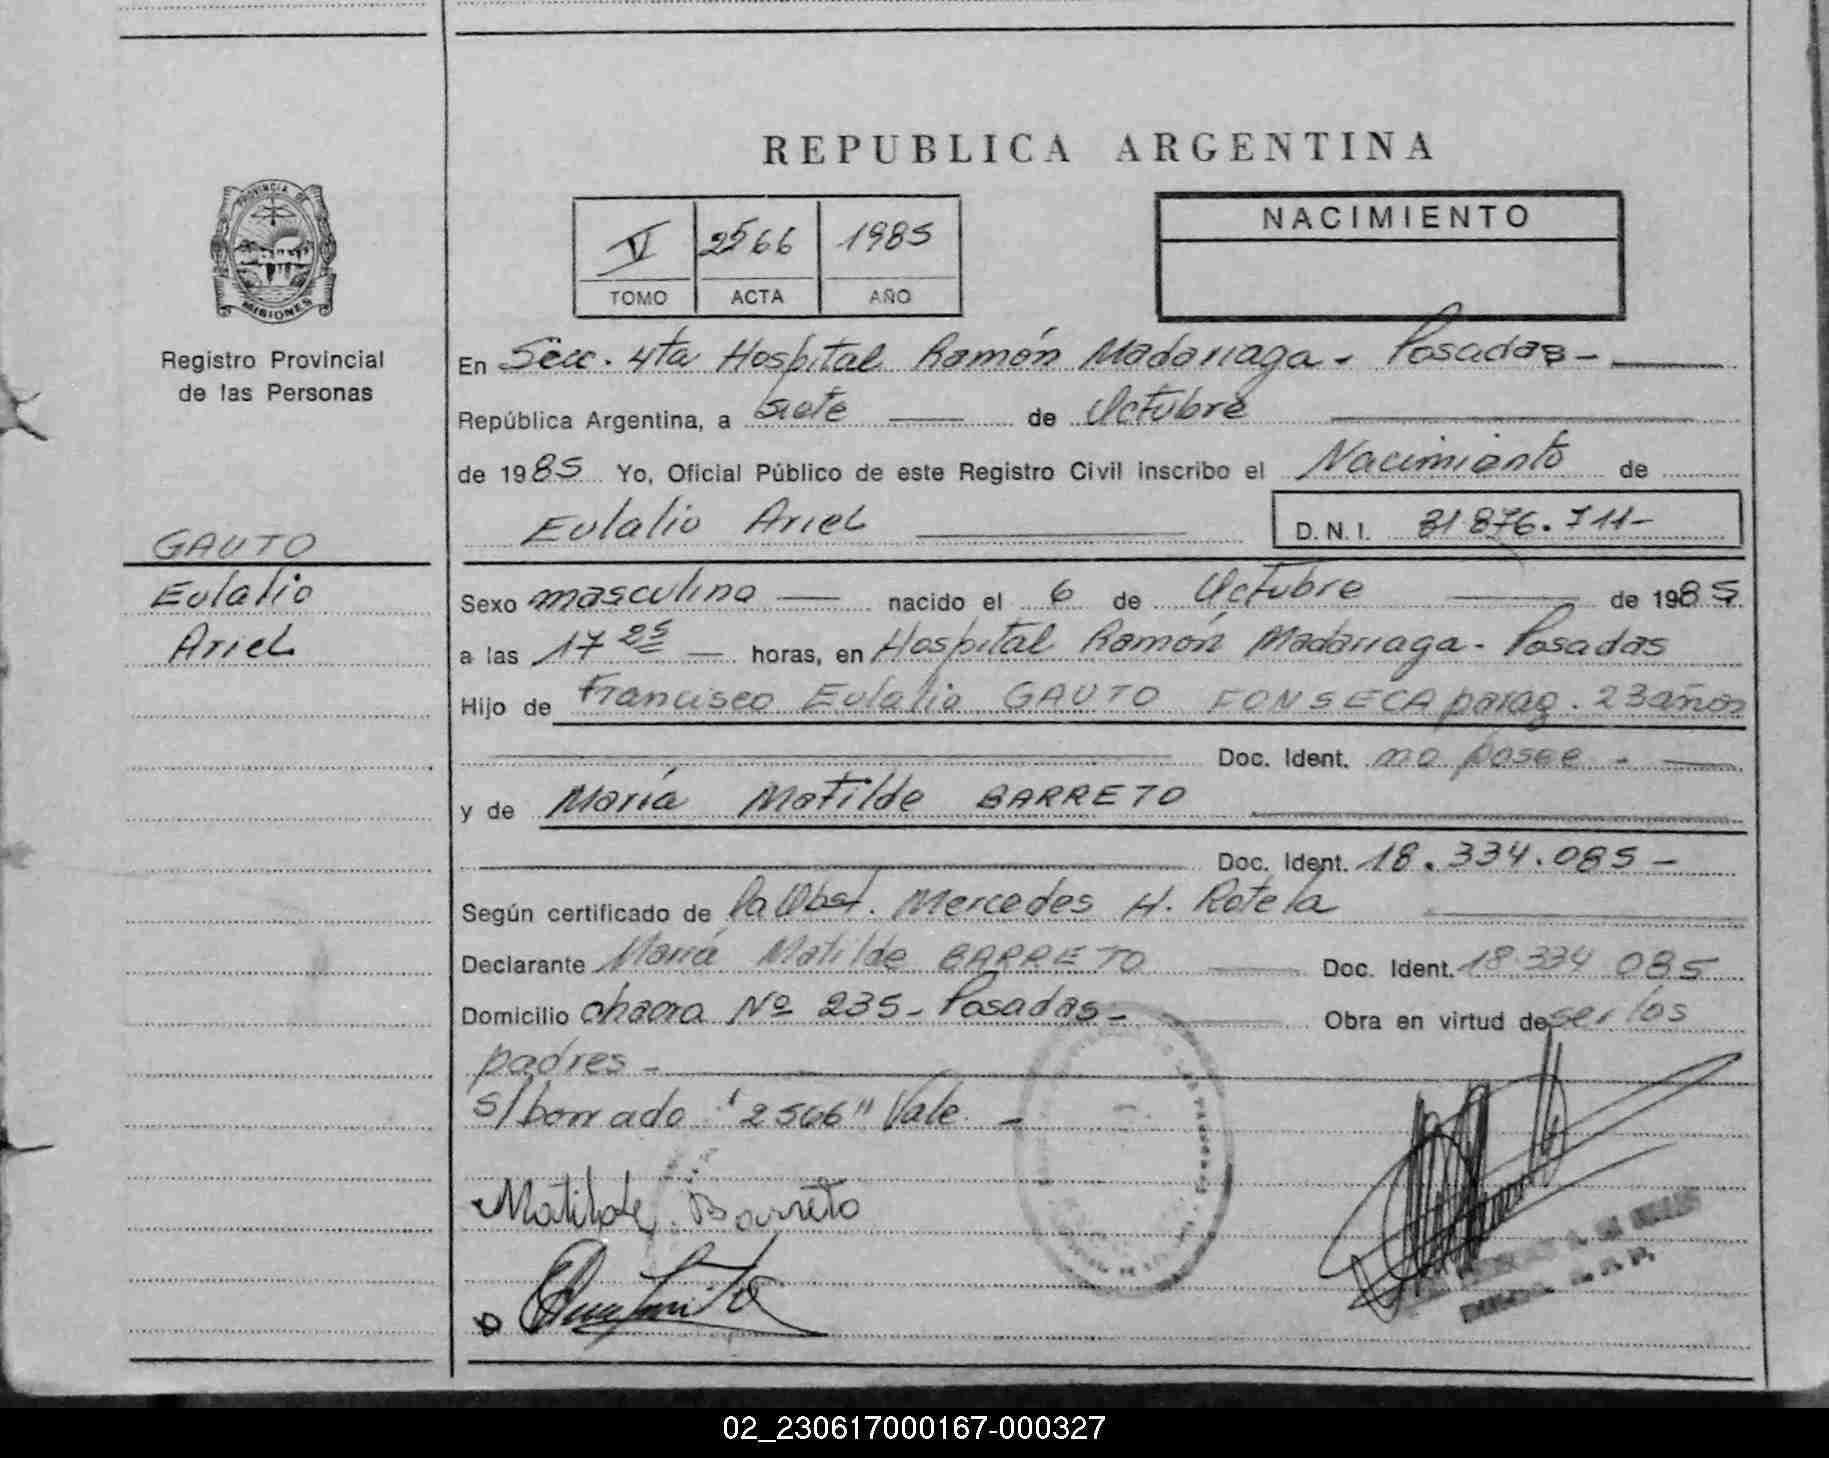 REPUBLICA ARGENTINA
PROVINCIA DE
MISIONES
Registro Provincial
de las Personas
V 2566 1985
TOMO ACTA AÑO
NACIMIENTO
En Secc. 4ta Hospital Ramón Madariaga - Posadas -
República Argentina, a siete de Octubre
de 1985 Yo, Oficial Público de este Registro Civil inscribo el Nacimiento de
Eulalio Ariel D.N.I. 31.876.711-
GAUTO
Eulalio
Ariel
Sexo masculino nacido el 6 de Octubre de 1985
a las 17 25 horas, en Hospital Ramón Madariaga - Posadas
Hijo de Francisco Eulalio GAUTO FONSECA parag. 23 años
Doc. Ident. no posee -
y de María Matilde BARRETO
Doc. Ident. 18.334.085 -
Según certificado de la Obst. Mercedes H. Rotela
Declarante María Matilde BARRETO Doc. Ident. 18.334 085
Domicilio chacra Nº 235 - Posadas - Obra en virtud de ser los
padres -
s/borrado "2566" Vale -
Matilde Barreto
02_230617000167-000327